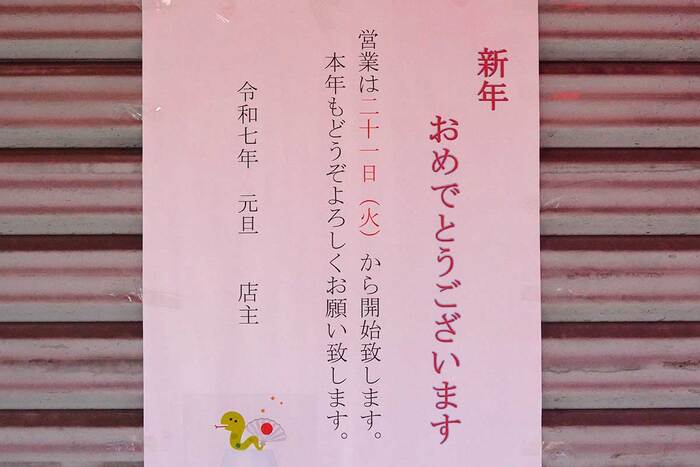 新年
おめでとうございます
営業は二十一日（火）から開始致します。
本年もどうぞよろしくお願い致します。
令和七年　元旦　店主